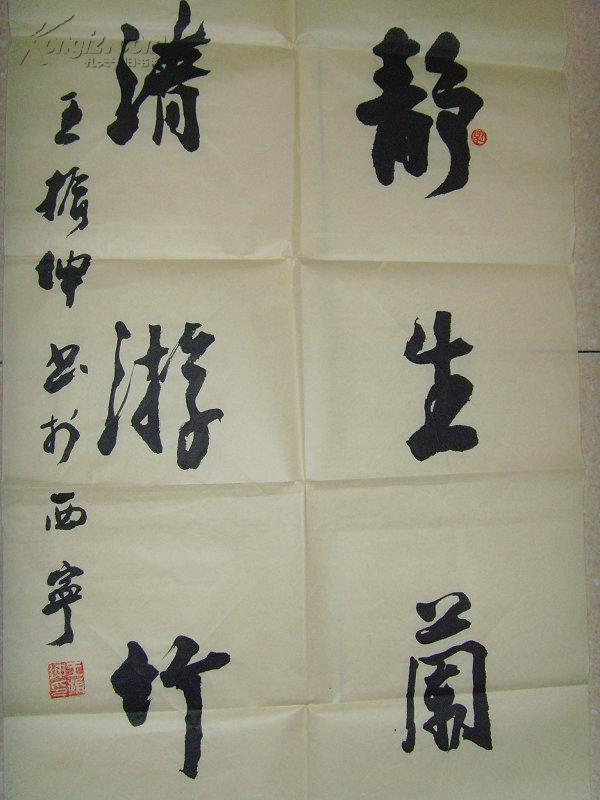 静生蘭
清游竹
王振坤书於西寧
Kongfz.com
孔夫子旧书网